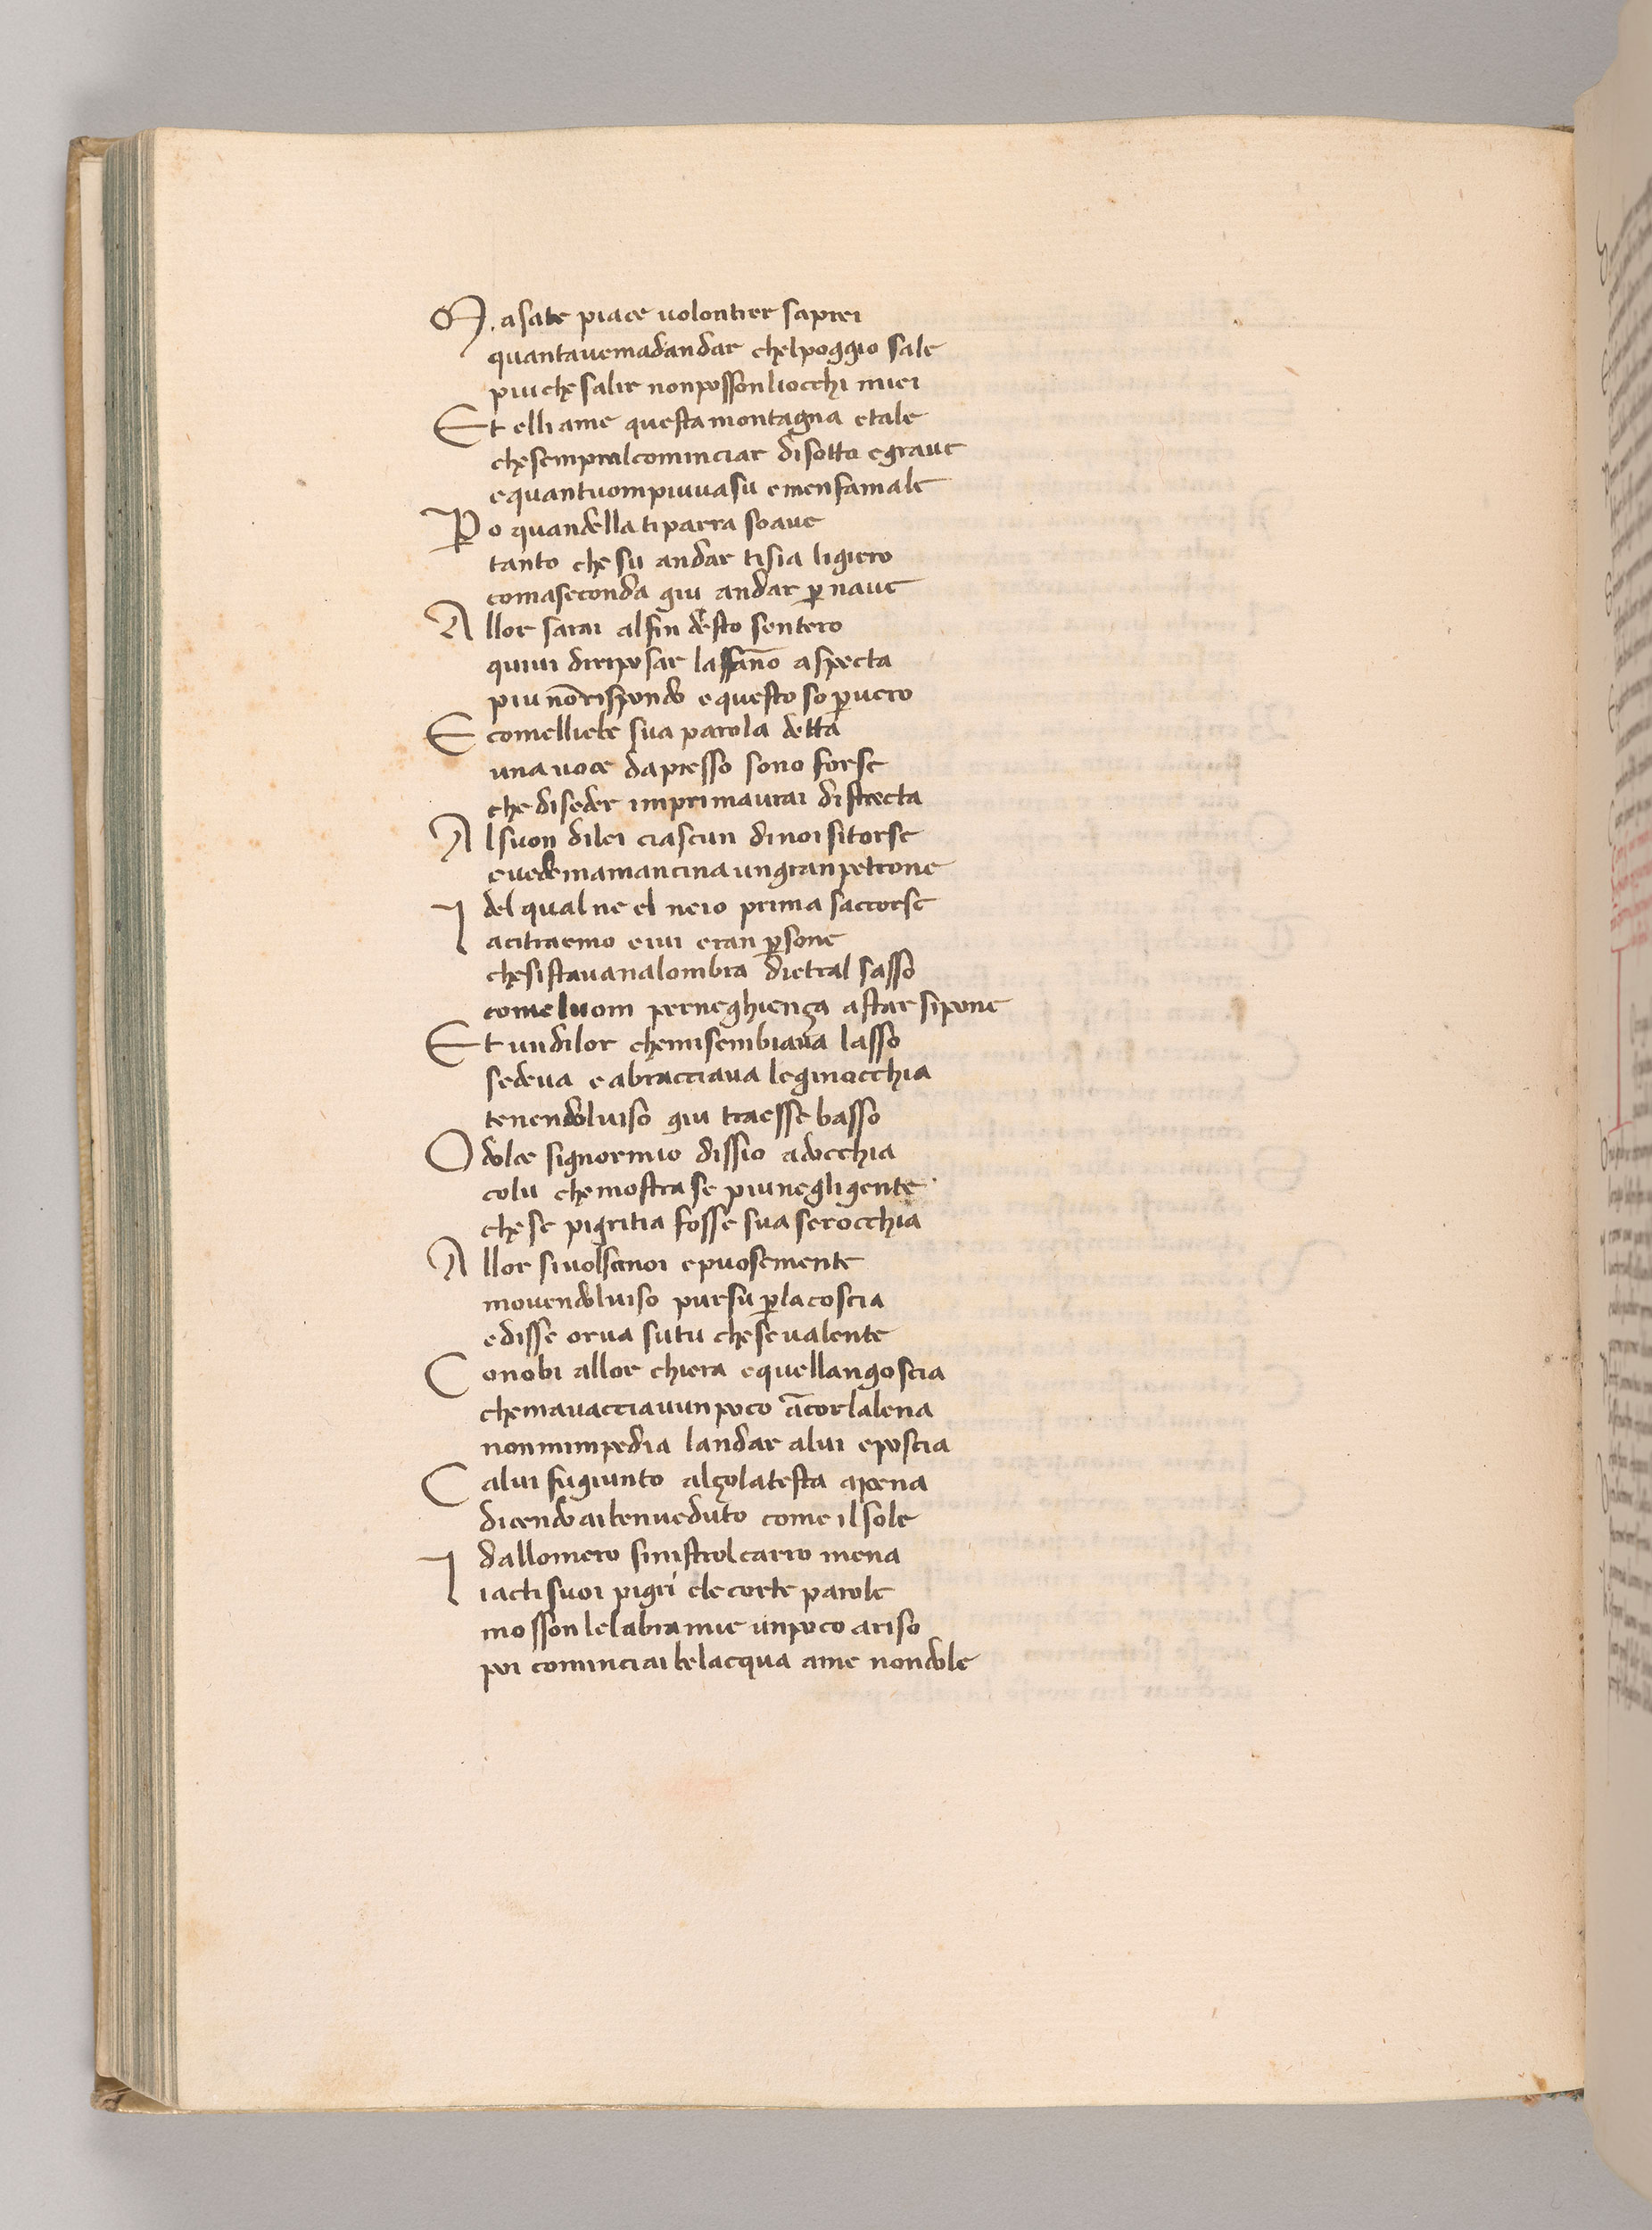 M. asate piace uolontier saprei
quantauemadandar chelpoggio sale
piuchesalir nonpossonliocchi miei
Et elli ame questa montagna etale
chesempralcominciar disotto egraue
equantuompiuuasu emenfamale
Po quandella tiparra soaue
tanto che su andar tisia ligiero
comaseconda giu andar p naue
Allor sarai alfin desto sentero
quiui diriposar laffāno aspecta
piu nōrispondo e questo so puero
E comelliebe sua parola detta
una uoce dapresso sono forse
che diseder imprimaurai distrecta
Alsuon dilei ciascun dinoi sitorse
euedemamancina ungranpetrone
I del qual ne el neio prima saccorse
acitraemo eiui eran psone
chesistauanalombra dietral sasso
comeluom perneghienza astar sipone
Et undilor chemisembiaua lasso
sedeua eabracciaua leginocchia
tenendoluiso giu traesse basso
O dolce signormio dissio adocchia
colui chemostra se piunegligente
chese pigritia fosse sua serocchia
Allor siuolscanoi epuosemente
mouendoluiso pursu placoscia
edisse orua sutu cheseualente
Conobi allor chiera equellangoscia
chemauacciauunpoco ācorlalena
nonmimpedia landar alui eposcia
C alui fugiunto alzolatesta apena
dicendo aibenueduto come ilsole
I dallomero sinistrolcarro mena
iactisuoi pigri ele corte parole
mosson lelabramie unpoco ariso
poi cominciai belacqua ame nondole